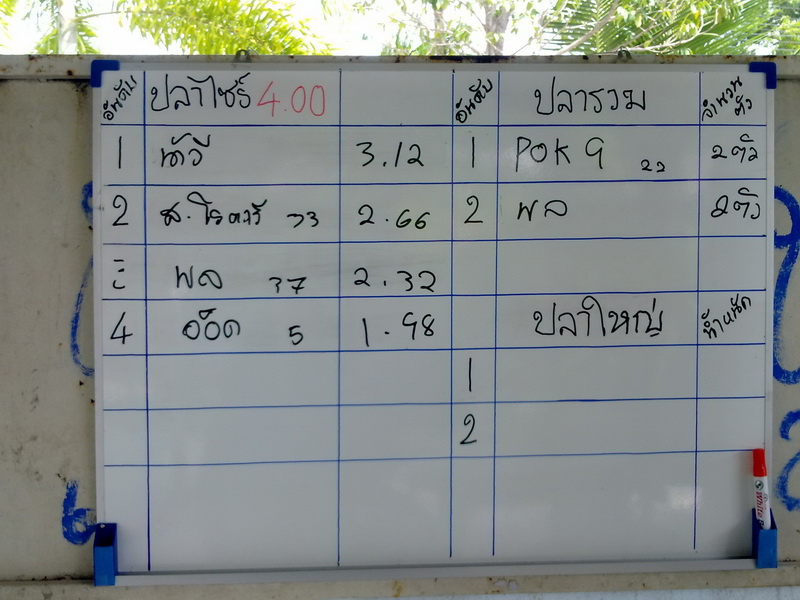 อันดับ ปลาไซร์ 4.00 อันดับ ปลารวม จำนวนตัว
1 นัวี 3.12 1 POK 9 22 2 ตัว
2 ส.โรตารี 33 2.66 2 พล 2 ตัว
พล 37 2.32
4 อ๊อด 5 1.98 ปลาใหญ่ น้ำหนัก
1
2